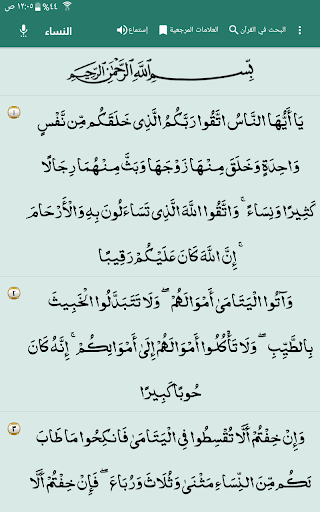 ١٢:٠٥ ص ٤٤%
النساء إستماع العلامات المرجعية البحث في القرآن
بِسْمِ اللَّهِ الرَّحْمَٰنِ الرَّحِيمِ
١ يَا أَيُّهَا النَّاسُ اتَّقُوا رَبَّكُمُ الَّذِي خَلَقَكُم مِّن نَّفْسٍ
وَاحِدَةٍ وَخَلَقَ مِنْهَا زَوْجَهَا وَبَثَّ مِنْهُمَا رِجَالًا
كَثِيرًا وَنِسَاءً ۚ وَاتَّقُوا اللَّهَ الَّذِي تَسَاءَلُونَ بِهِ وَالْأَرْحَامَ
ۚ إِنَّ اللَّهَ كَانَ عَلَيْكُمْ رَقِيبًا
٢ وَآتُوا الْيَتَامَىٰ أَمْوَالَهُمْ ۖ وَلَا تَتَبَدَّلُوا الْخَبِيثَ
بِالطَّيِّبِ ۖ وَلَا تَأْكُلُوا أَمْوَالَهُمْ إِلَىٰ أَمْوَالِكُمْ ۚ إِنَّهُ كَانَ
حُوبًا كَبِيرًا
٣ وَإِنْ خِفْتُمْ أَلَّا تُقْسِطُوا فِي الْيَتَامَىٰ فَانكِحُوا مَا طَابَ
لَكُم مِّنَ النِّسَاءِ مَثْنَىٰ وَثُلَاثَ وَرُبَاعَ ۖ فَإِنْ خِفْتُمْ أَلَّا